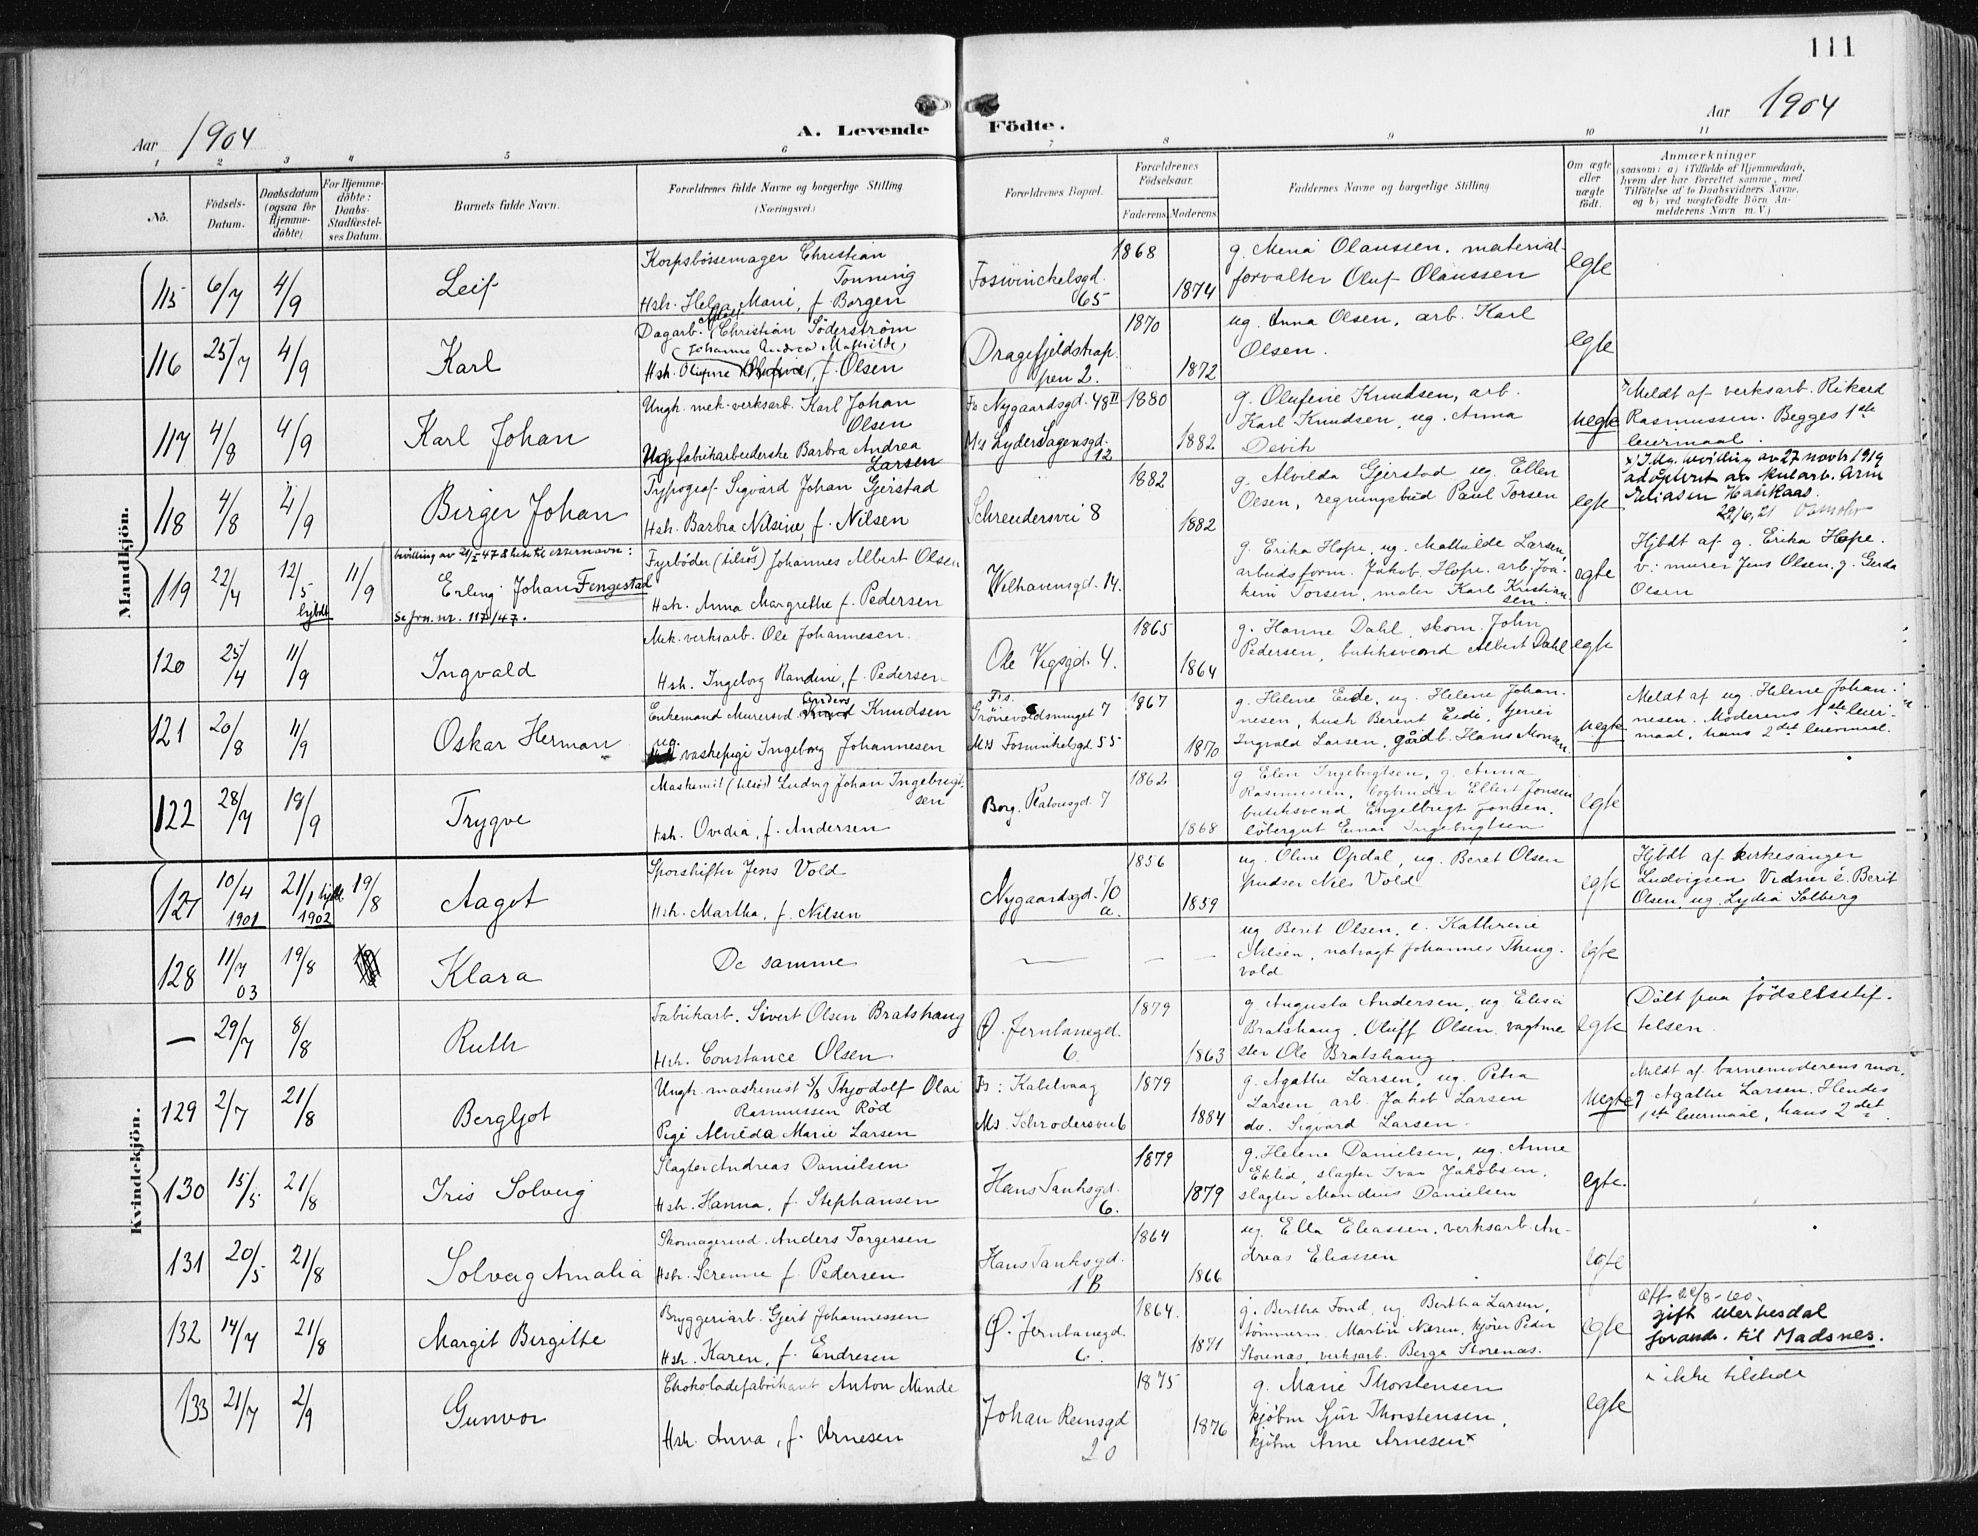 111
Aar 1904
A. Levende Födte.
Aar 1904
1 2 3 4 5 6 7 8 9 10 11
No.
Födsels-Datum.
Daabsdatum (ogsaa for Hjemme-döbte)
For Hjemme-döbte: Daabs-Stadfæstel-ses Datum.
Barnets fulde Navn.
Forældrenes fulde Navne og borgerlige Stilling
(Næringsvei.)
Forældrenes Bopæl.
Forældrenes Födselsaar.
Faderens. Moderens.
Faddernes Navne og borgerlige Stilling
Om ægte eller uægte födt.
Anmærkninger
(saasom: a) i Tilfælde af Hjemmedaab,
hvem der har forrettet samme, med
Tilföielse af to Daabsvidners Navne.
og b) ved uægtefödte Börn An-
melderens Navn m. V.)
Mandkjön.
115 6/7 4/9 Leif
Korpsbössemager Christian
Tonning
Hstr. Helga Marie, f. Borgen
Foswinckelsgd.
65
1868
1874
g. Mena Olaussen. material-
forvalter Oluf Olaussen
egte
116 25/7 4/9 Karl
Dagarb. Adolf Christian Söderström
(Johanne Andrea Mathilde)
Hstr. f. Olsen
Dragefjeldstrap-
pen 2.
1870
1872
ug. Anna Olsen, arb. Karl
Olsen.
egte
117 4/8 4/9 Karl Johan
Ungk. mek. verksarb. Karl Johan
Olsen
fabrikarbeiderske Barbra Andrea
Larsen
Fs Nygaardsgd. 48 II
Ms Lyder Sagensgd.
12
1880
1882
g. Olufine Knudsen, arb.
Karl Knudsen, ug. Anna
Devik
uegte
Meldt af verksarb. Rikard
Rasmussen. Begges 1ste
leiermaal.
118 4/8 4/9 Birger Johan
Typograf Sigvard Johan Gjerstad
Hstr. Barbra Nilsine, f. Nilsen
Schreudersvei 8
1882
1882
g. Alvilda Gjerstad ug. Ellen
Olsen, regningsbud Paul Torsen
egte
x) Ifdg. bevilling av 27 novbr 1919
adoptert av kularb. Arm
Eliasen Haukaas.
29/6.21
119 22/4 12/5 hjbdt 11/9
bevilling av 21/1 47 å hete til etternavn:
Erling Johan Fengestad
Se jrn. nr. 1175/47.
Fyrböder (tilsös) Johannes Albert Olsen
Hstr. Anna Margrethe f. Pedersen
Welhavensgd. 14.
g. Erika Hope, ug. Mathilde Larsen,
arbeidsform. Jakob Hope. arb. Joa-
kim Torsen, maler Karl Kristian-
sen.
egte
Hjbdt af g. Erika Hope.
v: murer Jens Olsen, g. Gerda
Olsen
120 25/4 11/9 Ingvald
Mek. verksarb. Ole Johannesen.
Hstr. Ingeborg Randine, f. Pedersen
Ole Vigsgd. 4.
1865
1864
g. Hanne Dahl, skom. John
Pedersen, butiksvend Albert Dahl
egte
121 20/8 11/9 Oskar Herman
Enkemand Mursvd. Anders Knudsen
ug. vaskepige Ingeborg Johannesen
Fs.
Grönevoldsmuget 7
Ms Foswinkelsgd. 55
1867
1870
g. Helene Eide, ug. Helene Johan-
nesen, husk Berent Eide, tjener
Ingvald Larsen, gårdb. Hans Monsen.
uegte
Meldt af ug. Helene Johan-
nesen. Moderens 1ste leier-
maal, hans 2det leiermaal.
122 28/7 18/9 Trygve
Maskinist (tilsös) Ludvig Johan Ingebrigt-
sen
Hstr. Ovidia, f. Andersen
Borg. Platousgd. 7
1862
1868
g Elen Ingebrigtsen, g. Anna
Rasmussen, bogbinder Ellert Jonsen
butiksvend Engelbrigt Jonsen.
löbergut Einar Ingebrigtsen
egte
Kvindekjön.
127 10/4 1901 21/1 hjdbt. 1902 19/8 Aagot
Sporskifter Jens Vold
Hstr. Martha, f. Nilsen
Nygaardsgd. 70
a.
1856
1859
ug. Oline Opdal, ug. Beret Olsen
pudser Nils Vold
egte
Hjbdt af kirkesanger
Ludvigsen Vidner e. Berit
Olsen, ug. Lydia Solberg
128 11/7 03 19/8 Klara
De samme
— — —
ug Berit Olsen, e. Kathrine
Nilsen, natvagt Johannes Theng-
vold
egte
— 29/7 8/8 Ruth
Fabrikarb. Sivert Olsen Bratshaug
Hstr. Constance Olsen
Ø. Jernbanegd.
6.
1879
1863
g. Augusta Andersen, ug Elisa
Bratshaug, Oluff Olsen, vagtme
ster Ole Bratshaug
egte
Döbt paa födselsstif-
telsen
129 2/7 21/8 Bergljot
Ungk. maskinist s/s Thjodolf Olai
Rasmussen Röd
Pige Alvilda Marie Larsen
Fs: Kabelvaag
Ms. Schrodersvei 6
1879
1884
g. Agathe Larsen, ug. Petra
Larsen arb. Jakob Larsen
do. Sigvard Larsen.
uegte
Meldt af barnemoderens mor,
g Agathe Larsen. Hendes
1ste leiermaal, hans 2det
130 15/5 21/8 Iris Solveig
Slagter Andreas Danielsen
Hstr. Hanna, f. Stephansen
Hans Tanksgd.
6.
1879
1879
g. Helene Danielsen, ug. Anne
Eklid, slagter Ivar Jakobsen,
slagter Mandius Danielsen
egte.
131 20/5 21/8 Solveig Amalia
Skomagersvd. Anders Torgersen
Hstr. Serenne f. Pedersen
Hans Tanksgd.
1 B
1864
1866
ug. Ella Eliassen, verksarb. An-
dreas Eliassen
egte
132 14/7 21/8 Margit Birgitte
Bryggeriarb. Gjert Johannessen
Hstr. Karen, f. Endresen
Ø. Jernbanegd.
6.
1864.
1871
g. Bertha Fond, ug Bertha Larsen,
tömmerm. Martin Næsen, kjörer Peder
Storenæs, verksarb. Berge Storenæs.
egte
gift
forandr. til Madsnes.
133 21/7 2/9 Gunvor
Chokoladefabrikant Anton Minde
Hstr. Anna, f. Arnesen
Johan Reinsgd
20
1875
1876
g. Marie Thorstensen
kjöbm Sjur Thorstensen,
kjöbm Arne Arnesen x
egte
x ikke tilstede